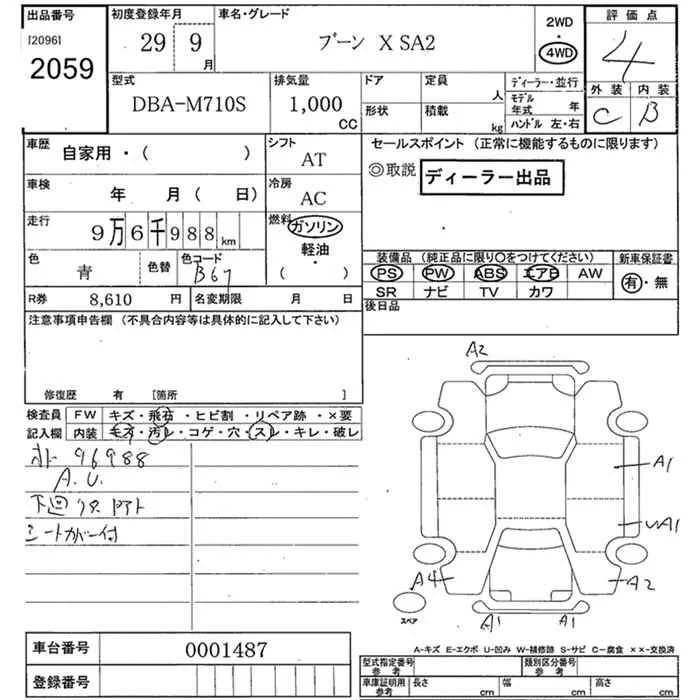 出品番号
[2096]
2059
初度登録年月
29 9
月
車名・グレード
ブーン X SA2
2WD
・
4WD
評価点
4
外装 内装
C B
型式
DBA-M710S
排気量
1,000
CC
ドア 定員
人
形状 積載
kg
ディーラー・並行
モデル
年式 年
ハンドル 左・右
車歴
自家用・( )
シフト
AT
車検
年 月( 日)
冷房
AC
走行
9万6千988 km
燃料
ガソリン
・
軽油
・
( )
色
青
色替
色コード
B67
R券 8,610 円
名変期限 月 日
セールスポイント (正常に機能するものに限ります)
◎取説 ディーラー出品
装備品 (純正品に限り〇をつけてください)
PS PW ABS エアB AW
SR ナビ TV カワ
新車保証書
有・無
後日品
注意事項申告欄 (不具合内容等は具体的に記入して下さい)
修復歴 有 [箇所 ]
検査員
記入欄
FW キズ・飛石・ヒビ割・リペア跡・×要
内装 モゲ・汚レ・コゲ・穴・スレ・キレ・破レ
オドー 96988
A.U.
下回リサビ
シートカバー付
A2
A1
A1
A4
A2
A1
A1
スペア
A-キズ E-エクボ U-凹み W-補修跡 S-サビ C-腐食 ××-交換済
車台番号 0001487
登録番号
型式指定番号
参考
類別区分番号
参考
車庫証明用
参考
長さ cm 幅 cm 高さ cm